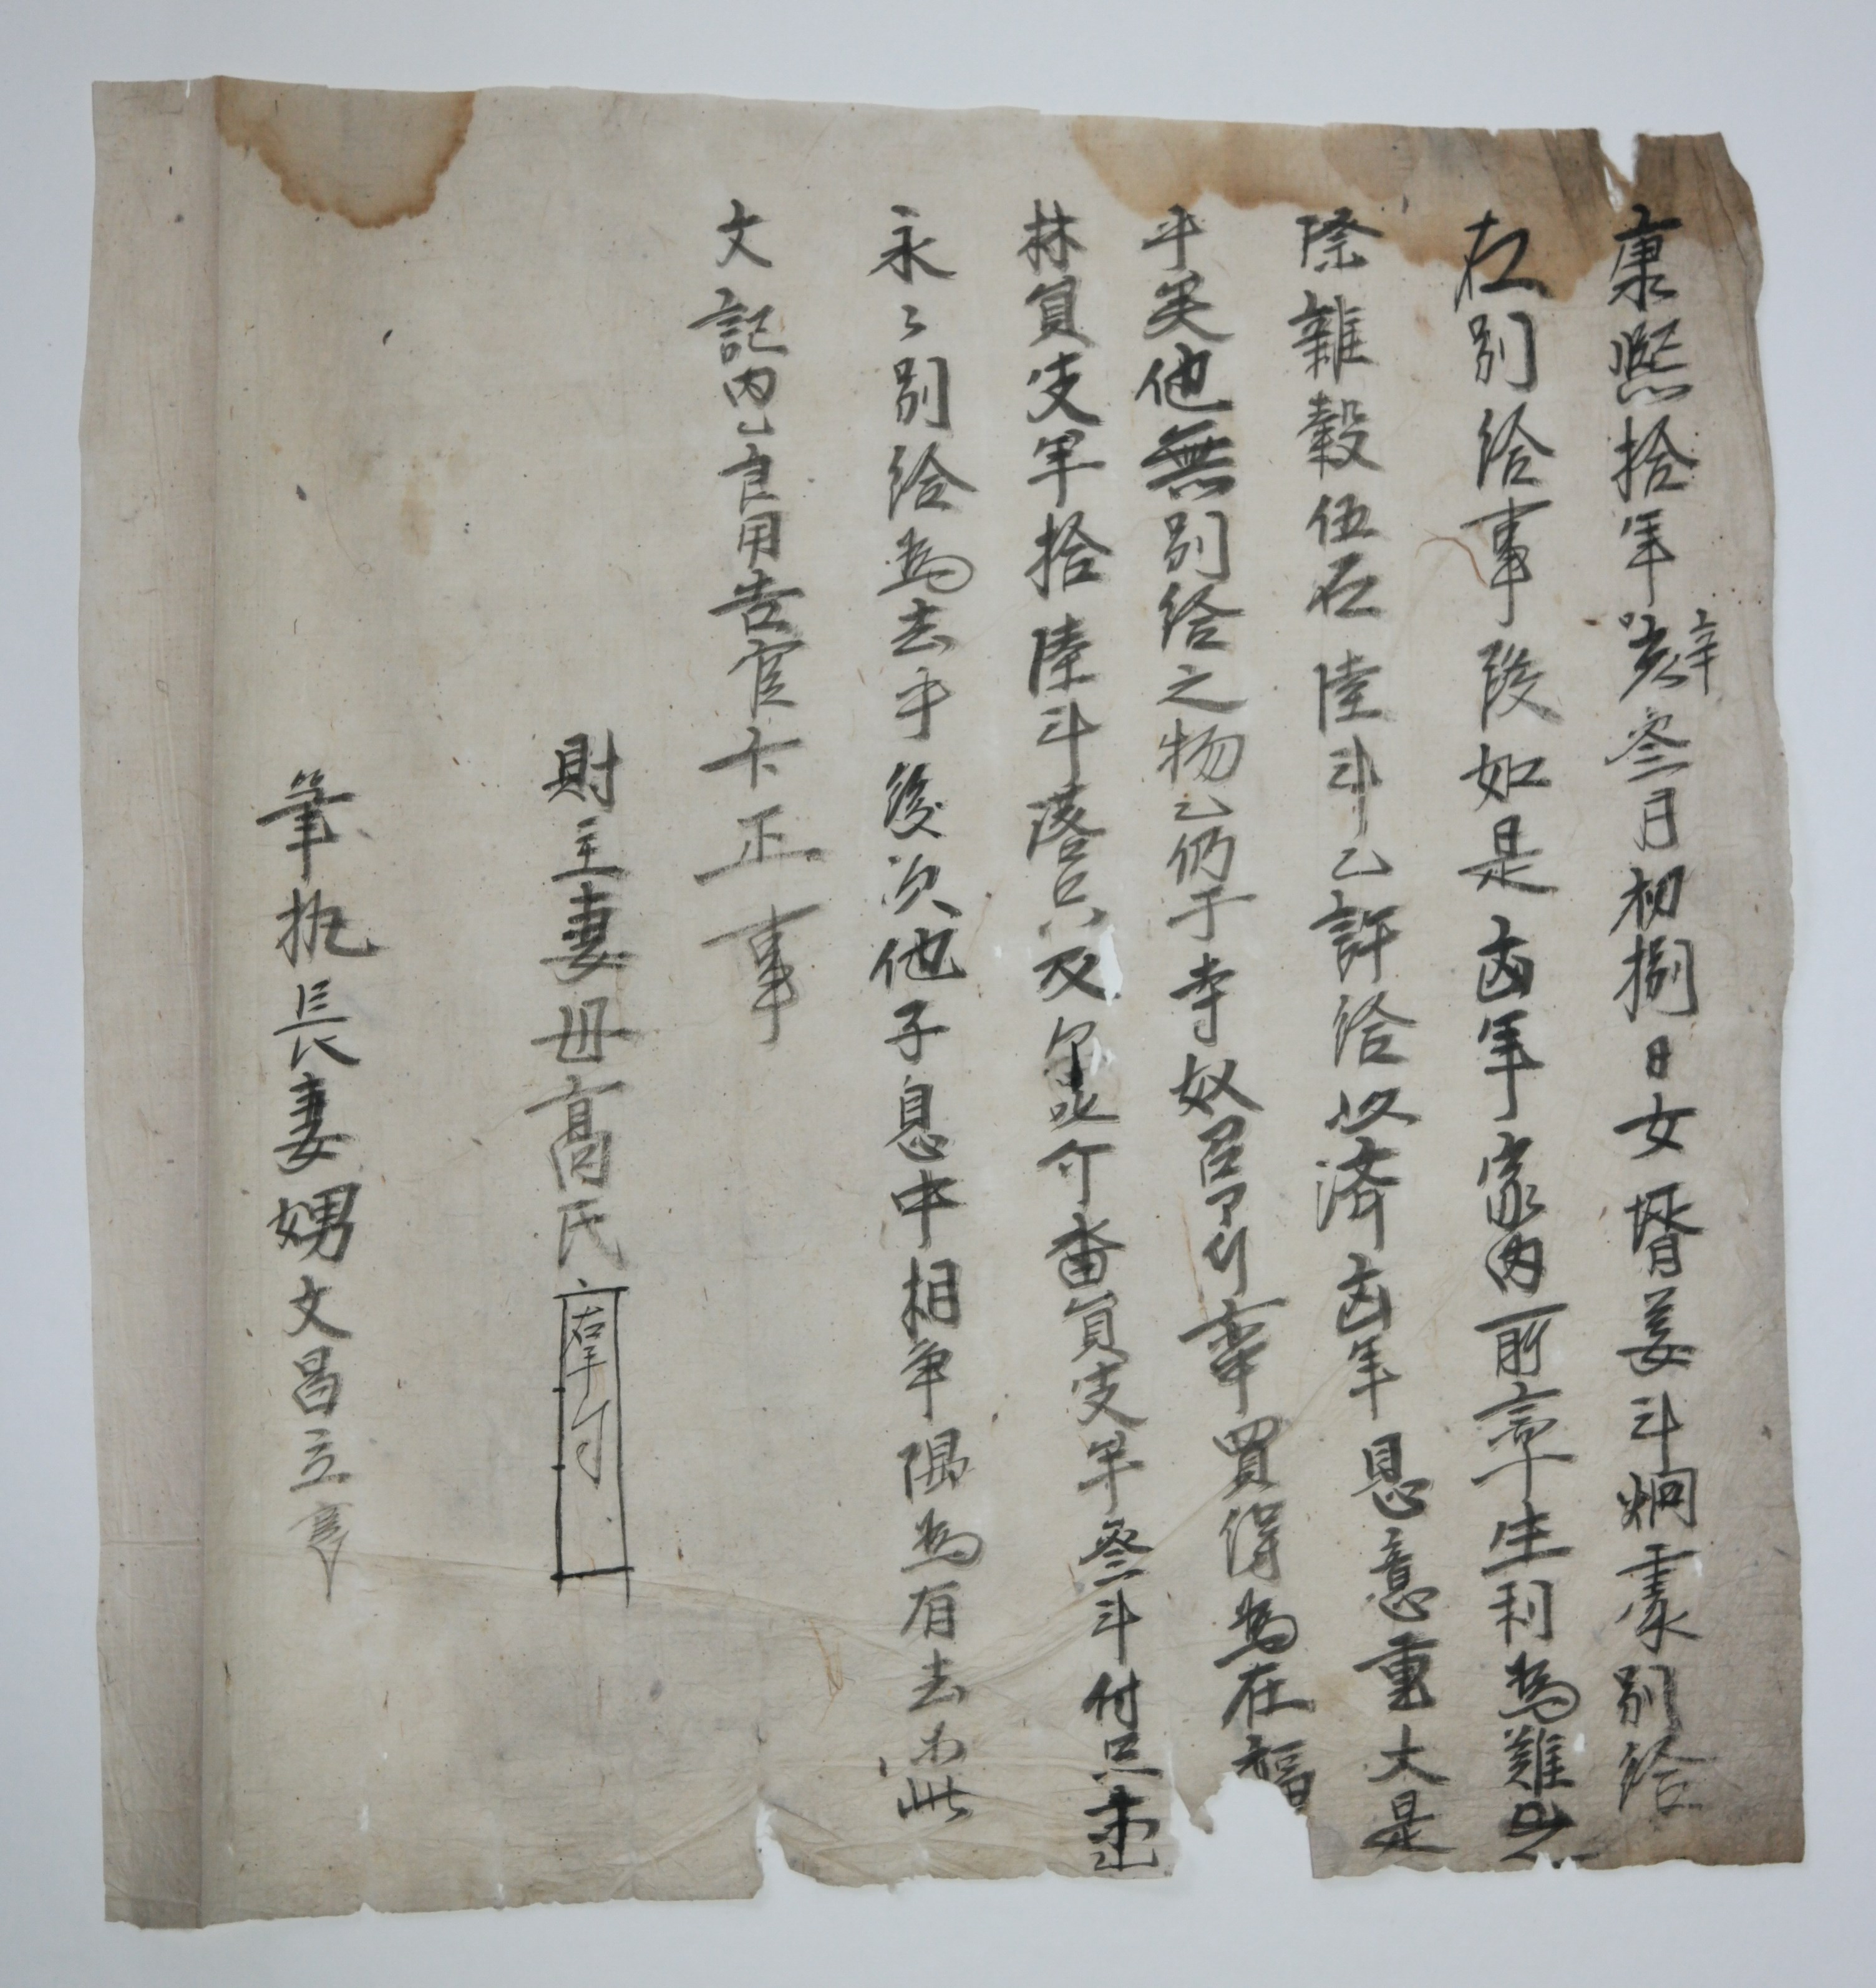 康熙拾年辛亥叄月初捌日女壻姜斗炯處別給
右別給事段如是凶年家內所章生利爲難之
際雜穀伍石陸斗乙許給以済凶年恩意重大是
乎矣他無別給之物乙仍于寺奴召了付處買得爲在福
林員支畓拾陸斗落只及泉介畓員支畓叄斗付只庫
永々別給爲去乎後次他子息中相爭隅爲有去等此
文記內乙良用告官卞正事
財主妻母高氏 右手寸
筆執長妻娚文昌立